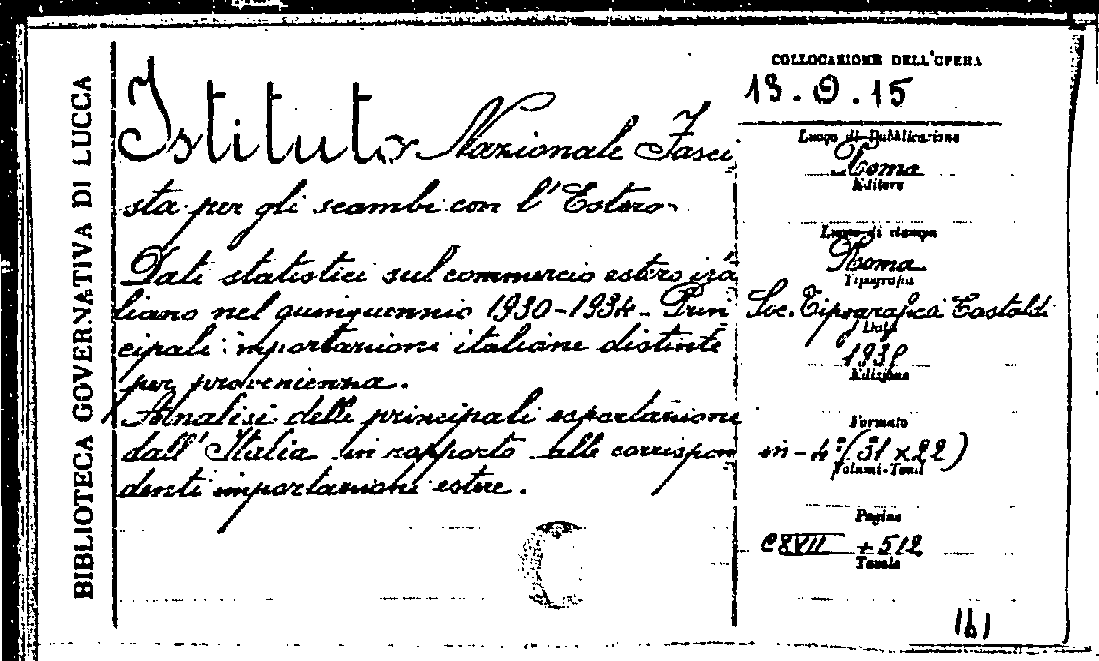 BIBLIOTECA GOVERNATIVA DI LUCCA
Istituto Nazionale Fasci
sta per gli scambi con l'Estero
Dati statistici sul commercio estero ita
liano nel quinquennio 1930-1934 - Prin
cipali importazioni italiane distinte
per provenienza.
Analisi delle principali esportazioni
dall'Italia in rapporto alle corrispon
denti importazioni estere.
COLLOCAZIONE DELL'OPERA
13. O. 15
Luogo di Pubblicazione
Roma
Editore
Luogo di stampa
Roma
Tipografia
Soc. Tipografica Castaldi
Data
Edizione
Formato
in-4° (31 x 22)
Volumi-Tomi
Pagine
CXVII + 512
Tavole